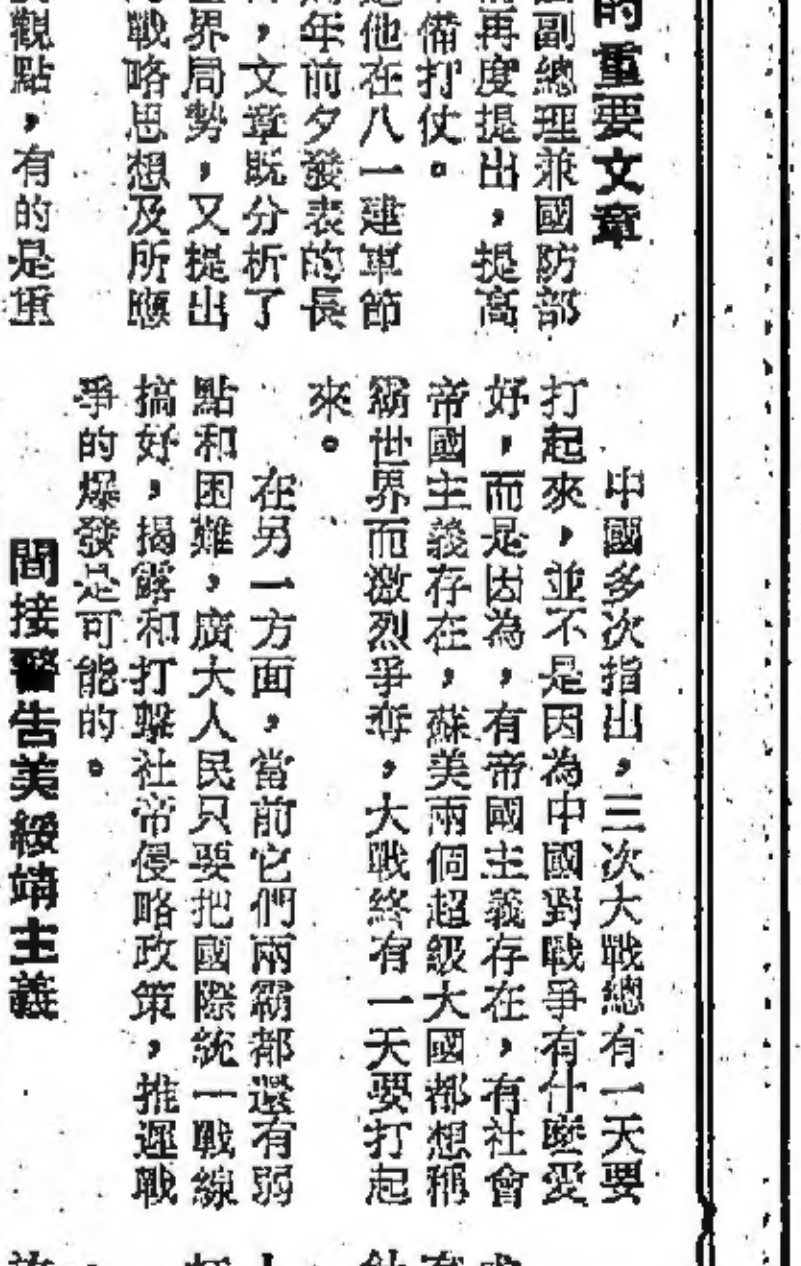 的重要文章
副總理兼國防部
再度提出，提高
備打仗。
他在八一建軍節
年前夕發表的長
，文章既分析了
界局勢，又提出
戰略思想及所應
觀點，有的是重
中國多次指出，三次大戰總有一天要
打起來，並不是因為中國對戰爭有什麼愛
好，而是因為，有帝國主義存在，有社會
帝國主義存在，蘇美兩個超級大國都想稱
霸世界而激烈爭奪，大戰終有一天要打起
來。
在另一方面，當前它們兩霸都還有弱
點和困難，廣大人民只要把國際統一戰線
搞好，揭露和打擊社帝侵略政策，推遲戰
爭的爆發是可能的。
間接警告美綏靖主義